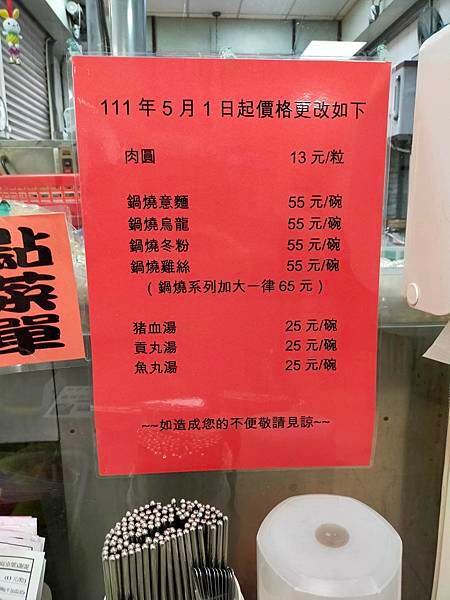 111 年 5 月 1 日起價格更改如下
肉圓 13 元/粒
鍋燒意麵 55 元/碗
鍋燒烏龍 55 元/碗
鍋燒冬粉 55 元/碗
鍋燒雞絲 55 元/碗
（鍋燒系列加大一律 65 元）
豬血湯 25 元/碗
貢丸湯 25 元/碗
魚丸湯 25 元/碗
~~如造成您的不便敬請見諒~~
點菜單